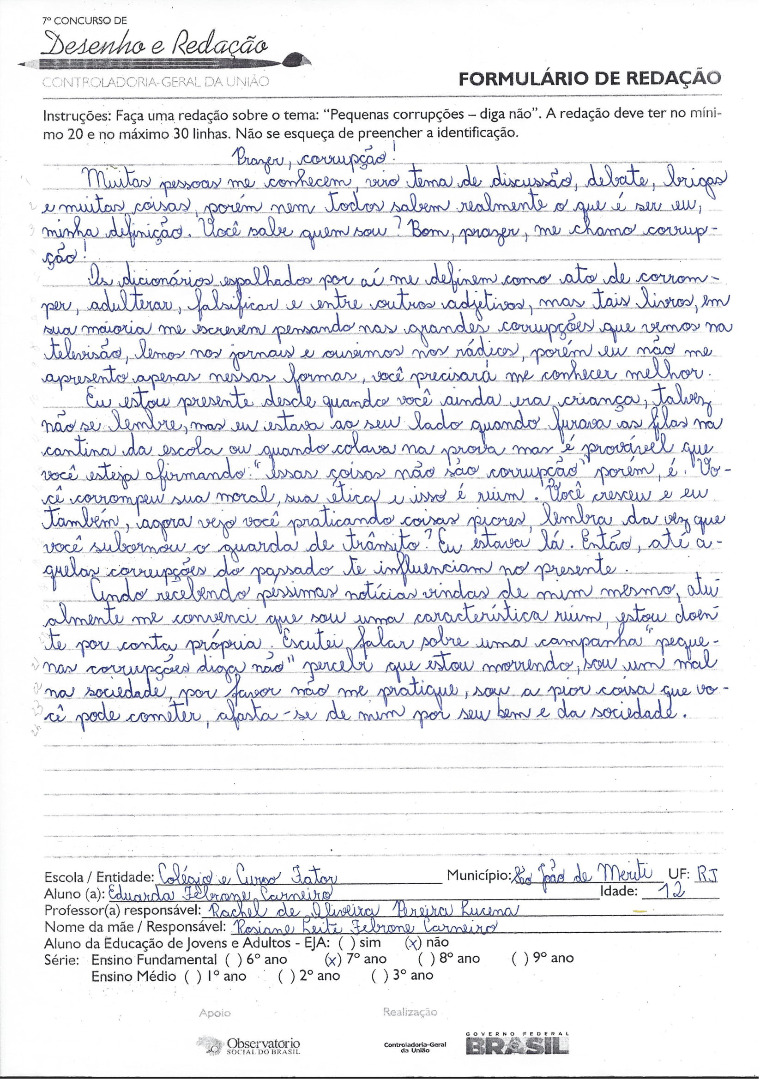 7º CONCURSO DE
Desenho e Redação
CONTROLADORIA-GERAL DA UNIÃO
FORMULÁRIO DE REDAÇÃO
Instruções: Faça uma redação sobre o tema: “Pequenas corrupções – diga não”. A redação deve ter no míni-
mo 20 e no máximo 30 linhas. Não se esqueça de preencher a identificação.
Prazer, corrupção!
Muitas pessoas me conhecem, viro tema de discussão, debate, brigas
e muitas coisas, porém nem todos sabem realmente o que é ser eu,
minha definição. Você sabe quem sou? Bom, prazer, me chamo corrup-
ção!
Os dicionários espalhados por aí me definem como ato de corrom-
per, adulterar, falsificar e entre outros adjetivos, mas tais livros, em
sua maioria me escrevem pensando nas grandes corrupções que vemos na
televisão, lemos nos jornais e ouvimos nos rádios, porém eu não me
apresento apenas nessas formas, você precisará me conhecer melhor.
Eu estou presente desde quando você ainda era criança, talvez
não se lembre, mas eu estava ao seu lado quando furava as filas na
cantina da escola ou quando colava na prova mas é provável que
você esteja afirmando: "Essas coisas não são corrupção" porém, é. Vo-
cê corrompeu sua moral, sua ética e isso é ruim. Você cresceu e eu
também, agora vejo você praticando coisas piores, lembra da vez que
você subornou o guarda de trânsito? Eu estava lá. Então, até a-
quelas corrupções do passado te influenciam no presente.
Ando recebendo pessimas notícias vindas de mim mesmo, atu
almente me convenci que sou uma característica ruim, estou doen
te por conta própria. Escutei falar sobre uma campanha "peque-
nas corrupções diga não" percebi que estou morrendo, sou um mal
na sociedade, por favor não me pratique, sou a pior coisa que vo-
cê pode cometer, afasta-se de mim por seu bem e da sociedade.
Escola / Entidade: Colégio e Curso Fator Município: São João de Meriti UF: RJ
Aluno (a): Eduarda Febrone Carneiro Idade: 12
Professor(a) responsável: Rachel de Oliveira Pereira Lucena
Nome da mãe / Responsável: Rosiane Leite Febrone Carneiro
Aluno da Educação de Jovens e Adultos - EJA: ( ) sim (x) não
Série: Ensino Fundamental ( ) 6º ano (x) 7º ano ( ) 8º ano ( ) 9º ano
Ensino Médio ( ) 1º ano ( ) 2º ano ( ) 3º ano
Apoio Realização
Observatório
SOCIAL DO BRASIL
Controladoria-Geral
da União
GOVERNO FEDERAL
BRASIL